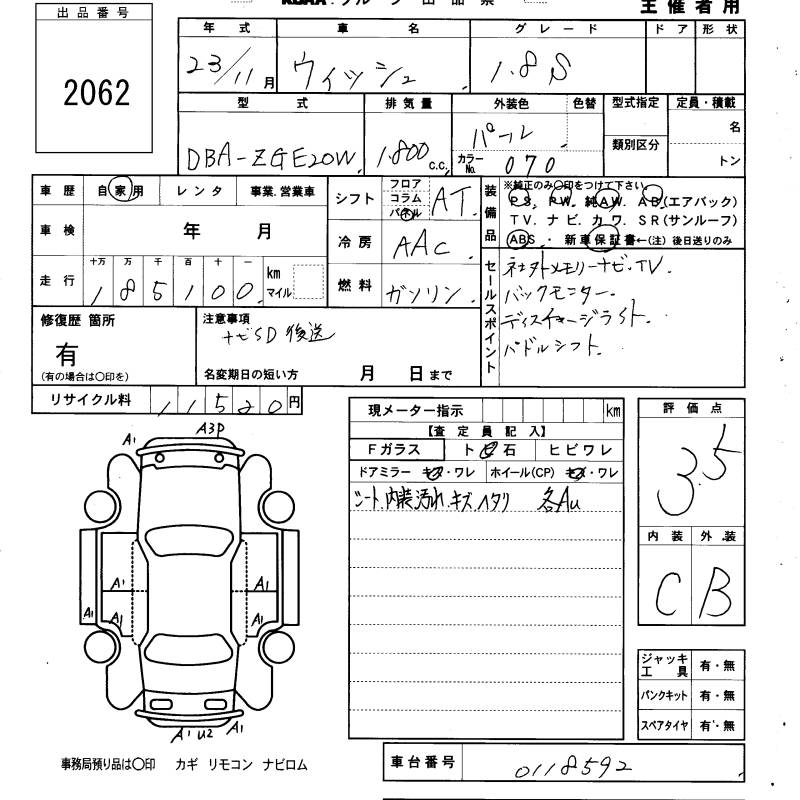 出品番号
主催者用
2062
年 式 車 名 グ レ ー ド ド ア 形 状
23/11月 ウィッシュ 1.8S
型 式 排気量 外装色 色替 型式指定 定員・積載
DBA-ZGE20W 1.800c.c. パール 類別区分 名
カラーNo. 070 トン
車 歴 自家用 レンタ 事業.営業車 シフト フロア コラム パネル AT
装備品 ※純正のみ〇印をつけて下さい
PS. PW. 純AW. AB(エアバック)
TV. ナビ. カワ. SR(サンルーフ)
ABS. ・ 新車保証書←(注) 後日送りのみ
車 検 年 月 冷 房 AAC
走 行 十万 万 千 百 十 一 km マイル 燃 料 ガソリン
185100
セールスポイント
メモリーナビ.TV.
バックモニター.
ディスチャージライト.
パドルシフト.
修復歴 箇所 注意事項
ナビSD後送
有
(有の場合は〇印を) 名変期日の短い方 月 日まで
リサイクル料 11520円
現メーター指示 km
【査 定 員 記 入】
Fガラス ト ビ 石 ヒビワレ
ドアミラー キズ・ワレ ホイール(CP) キズ・ワレ
シート、内装汚れ.キズ.ハタリ 各AU
評 価 点
3.5
内 装 外 装
C B
A1 A3P
A1 A1
A1 A1 A1
A1 U2 A1
ジャッキ 工 具 有・無
パンクキット 有・無
スペアタイヤ 有・無
事務局預り品は〇印 カギ リモコン ナビロム
車台番号 0118592